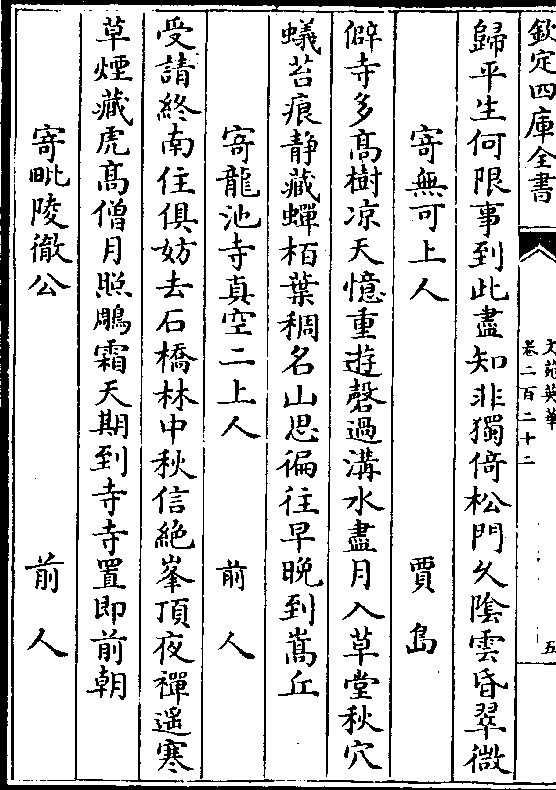 欽定四庫全書
文苑英華
卷二百二十二
五
歸平生何限事到此盡知非獨倚松門久陰雲昏翠微
寄無可上人 賈島
僻寺多高樹凉天憶重遊磬過溝水盡月入草堂秋穴
蟻苔痕靜藏蟬栢葉稠名山思徧往早晚到嵩丘
寄龍池寺真空二上人 前人
受請終南住俱妨去石橋林中秋信絶峯頂夜禪遥寒
草煙藏虎高僧月照鵰霜天期到寺寺置即前朝
寄毗陵徹公 前人